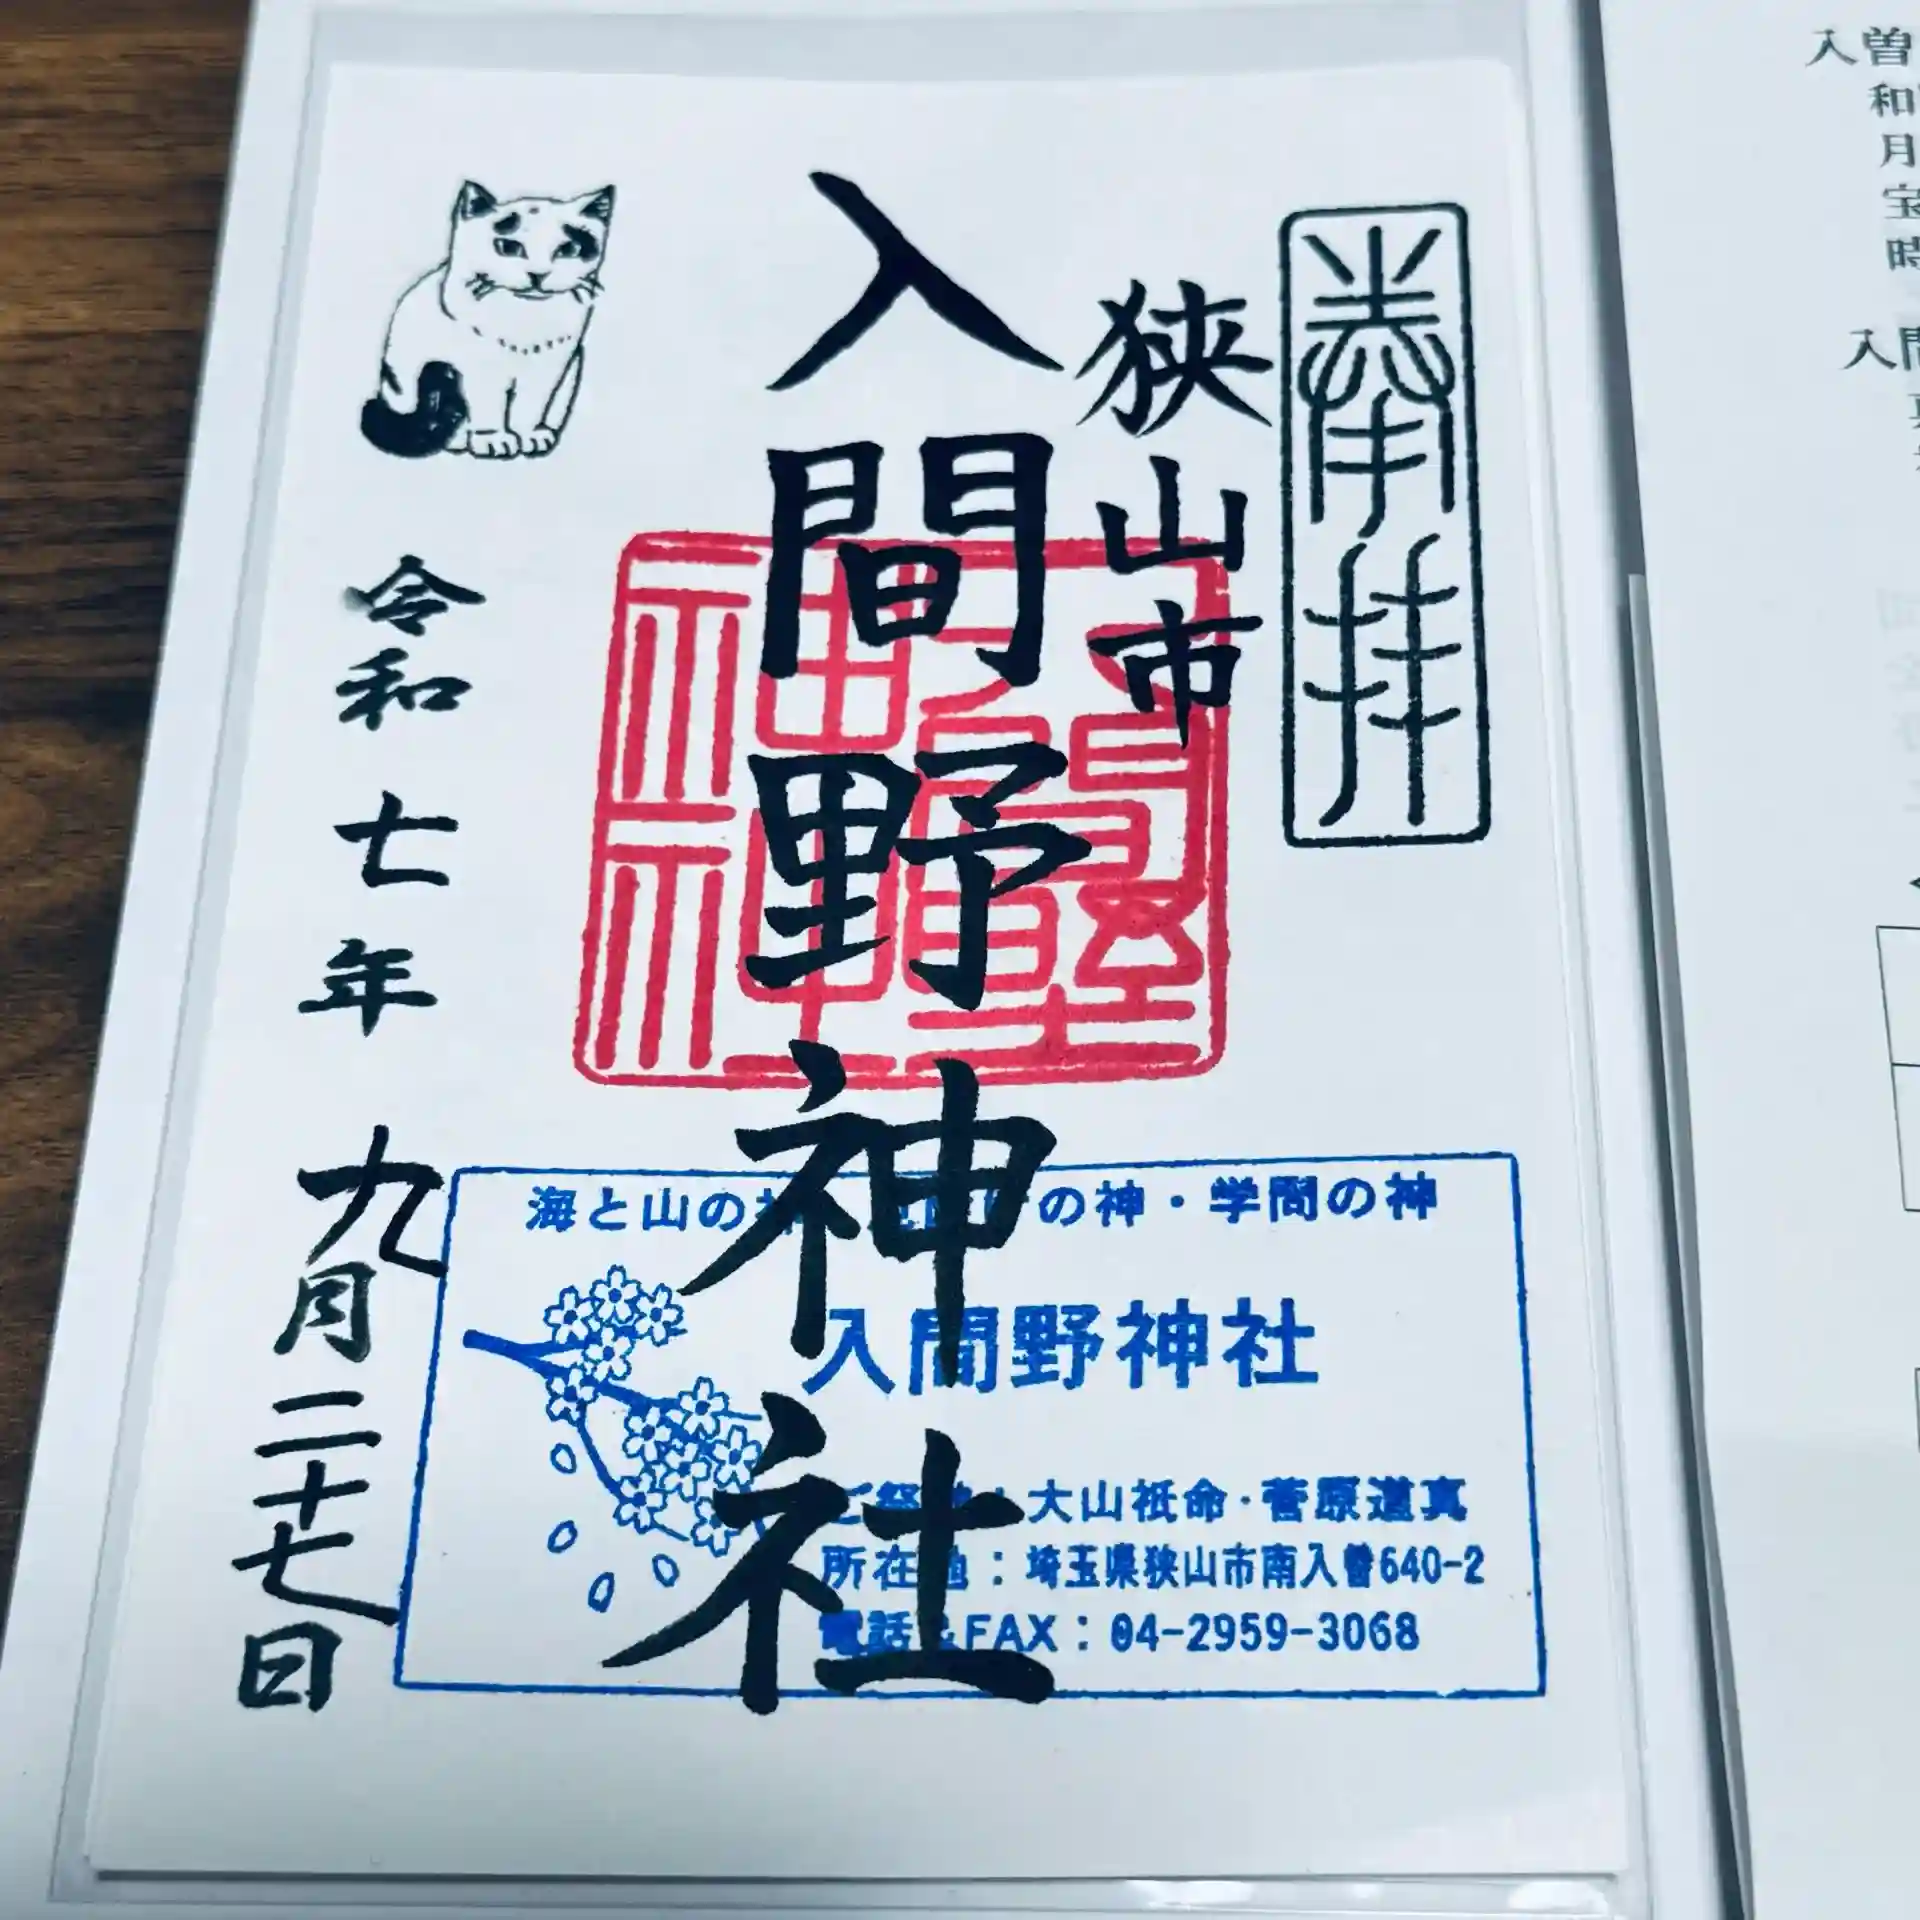 奉拝
狭山市
入間野神社
令和七年 九月二十七日
海と山の神 の神・学問の神
入間野神社
大山祇命・菅原道真
所在地：埼玉県狭山市南入曽640-2
電話&FAX：04-2959-3068
入曽
和
月
宝
時
入間